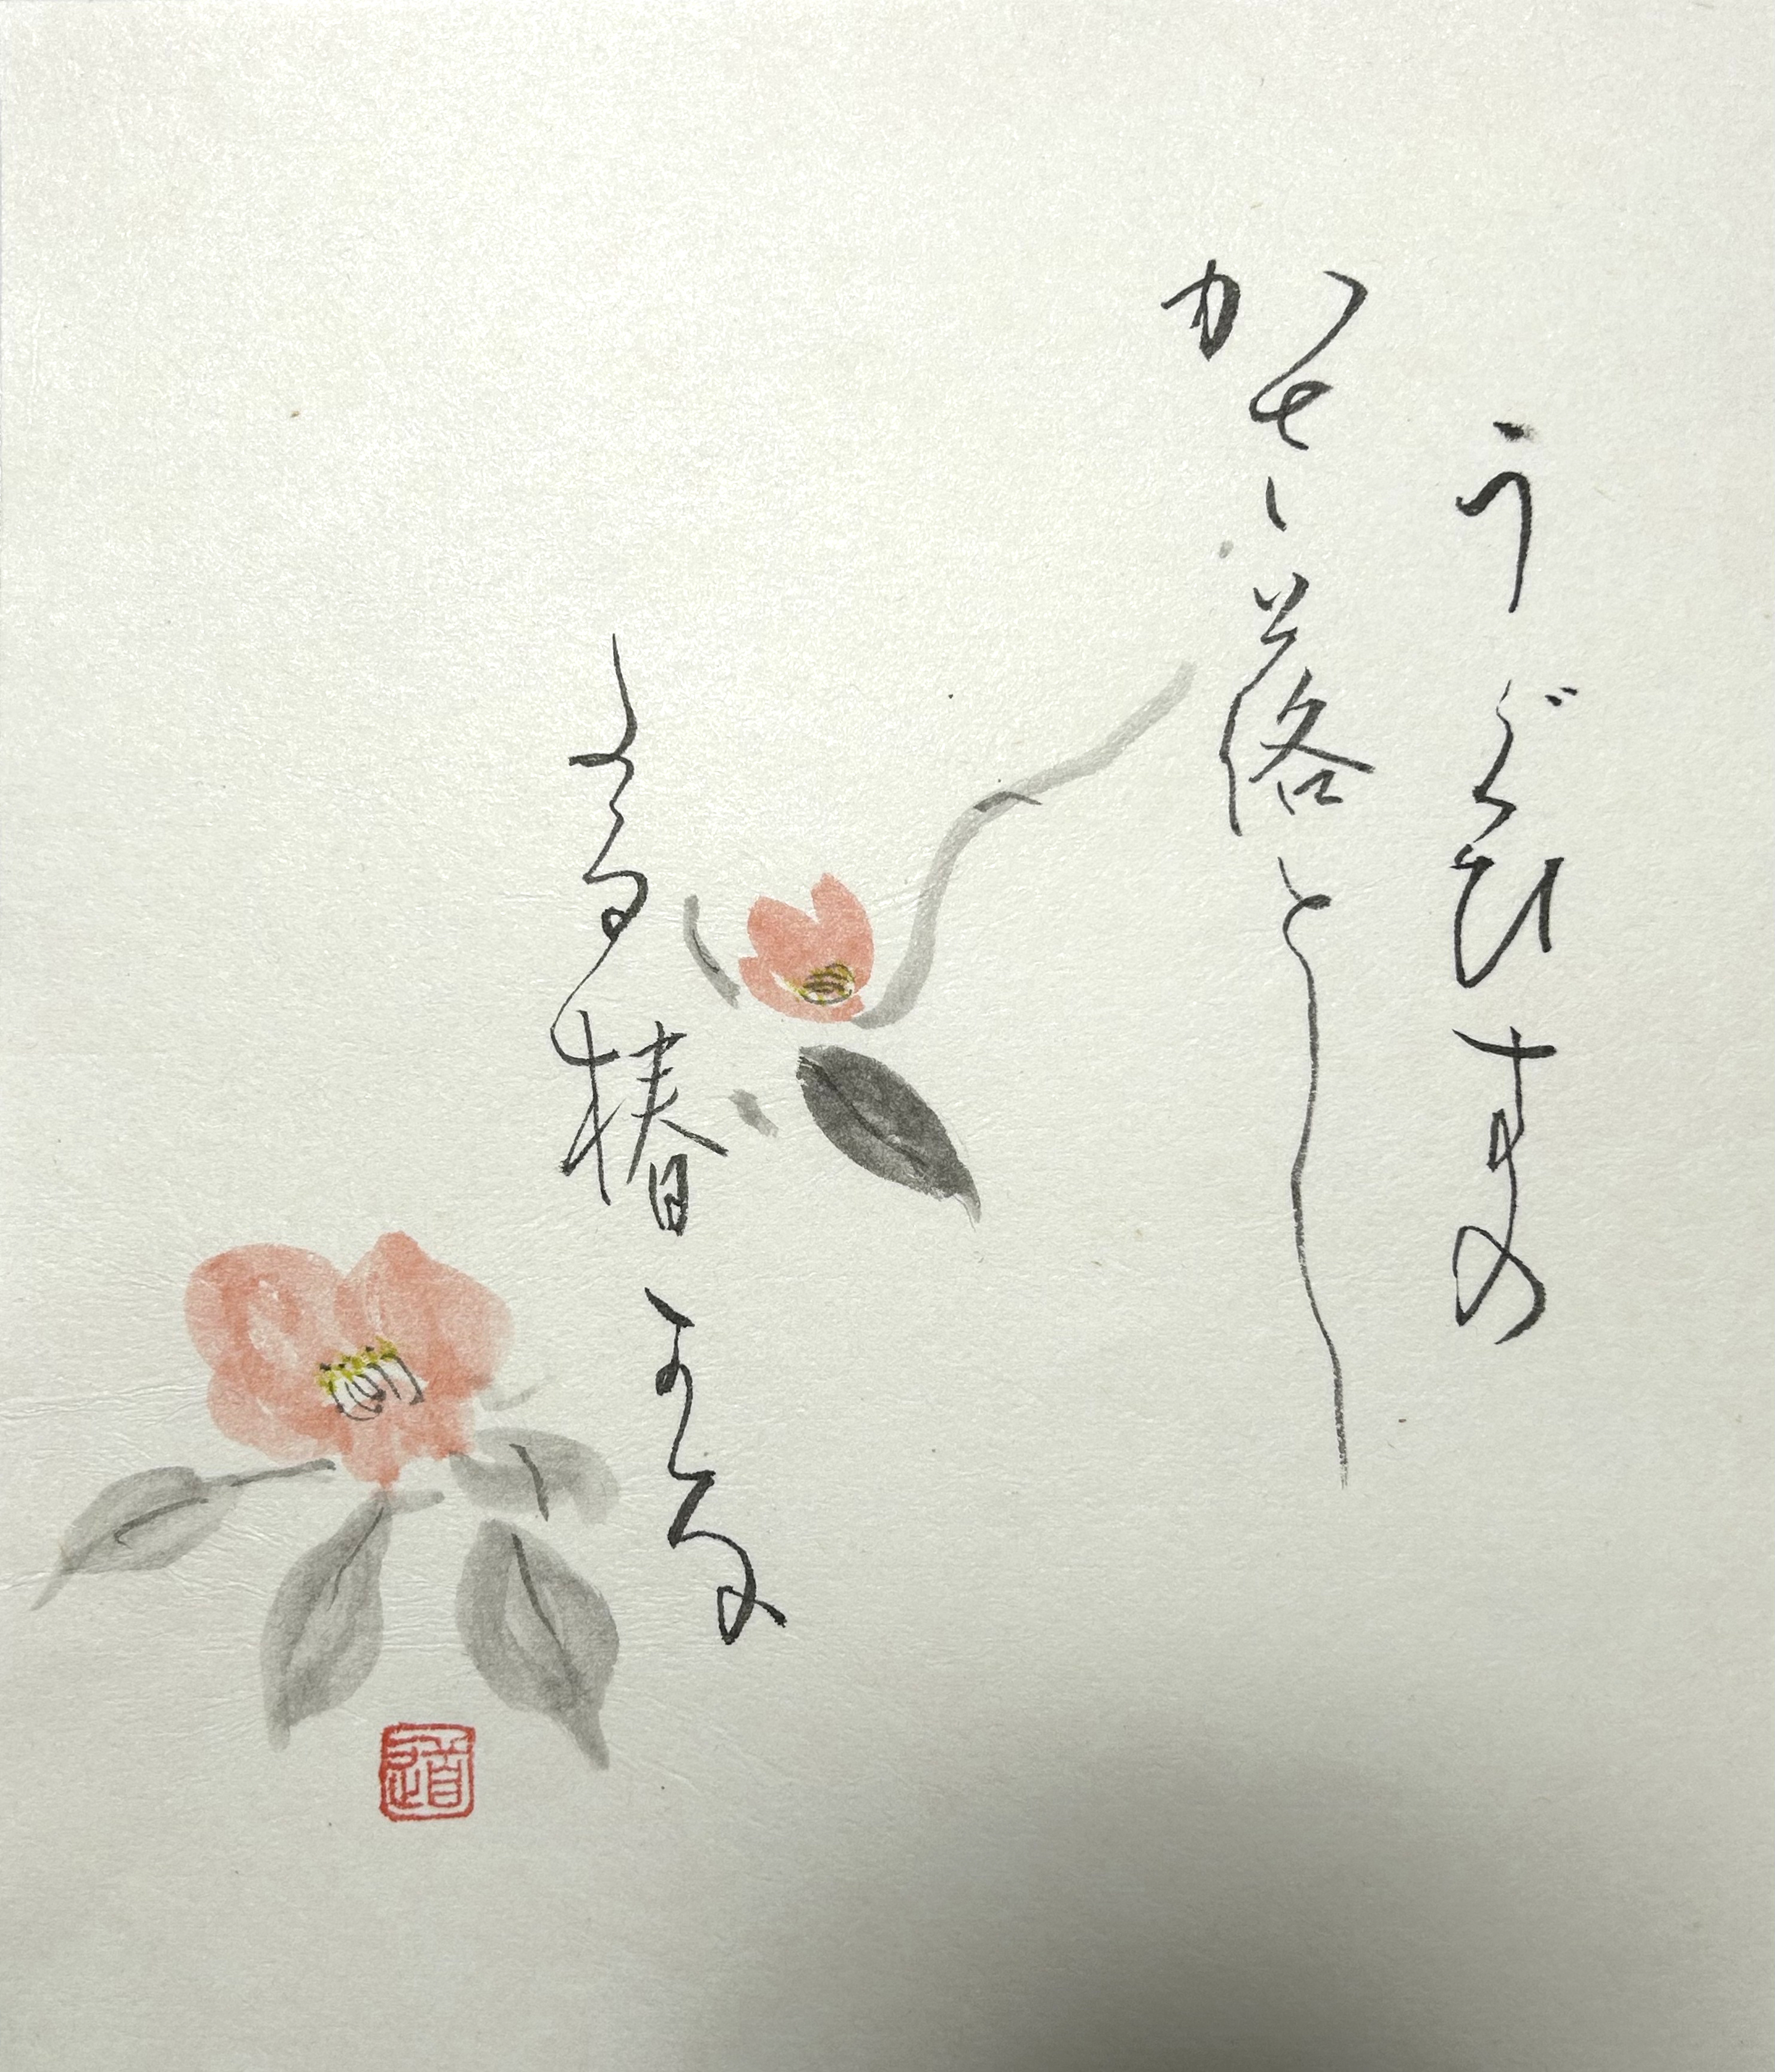 うぐひすの
かさ落とし
たる椿かな
道